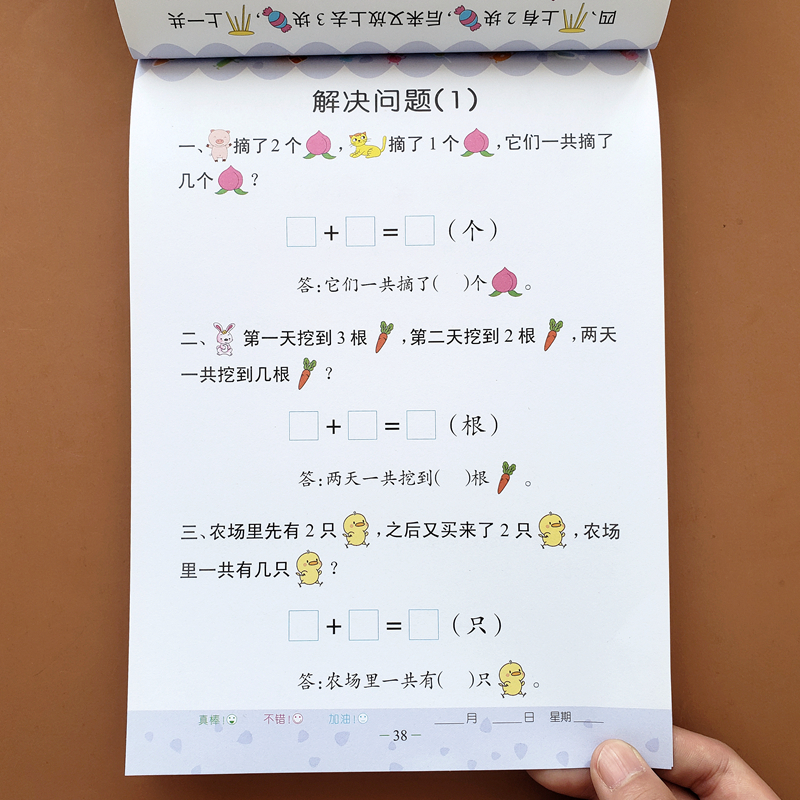 四、上有2块，后来又放上去3块，上一共
解决问题(1)
一、摘了2个，摘了1个，它们一共摘了
几个？
□+□=□(个)
答：它们一共摘了( )个。
二、第一天挖到3根，第二天挖到2根，两天
一共挖到几根？
□+□=□(根)
答：两天一共挖到( )根。
三、农场里先有2只，之后又买来了2只，农场
里一共有几只？
□+□=□(只)
答：农场里一共有( )只。
真棒！ 不错！ 加油！ ____月____日 星期____
—38—